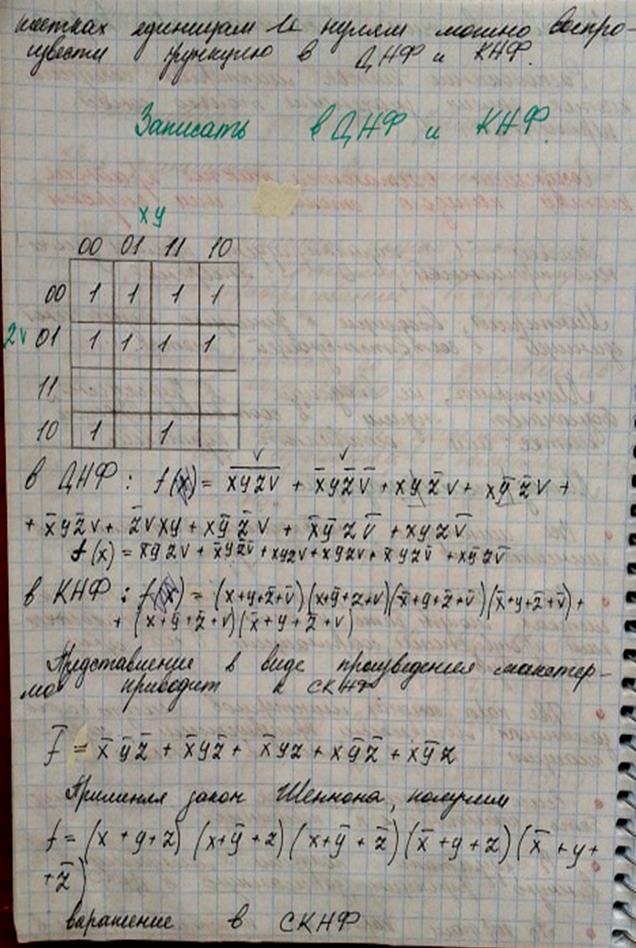 клетках единицам и нулям можно воспро-
извести функцию в ДНФ и КНФ.
Записать в ДНФ и КНФ.
xy
00 01 11 10
00 1 1 1 1
zv 01 1 1 1 1
11
10 1 1
в ДНФ: f(x) = x̅y̅z̅v̅ + x̅yz̅v̅ + xyz̅v +
+ x̅yz̅v + z̅vxy + xy̅z̅v + x̅y̅zv̅ + xyzv̅
в КНФ: f(x) = (x+y+z̅+v̅)(x+y̅+z+v)(x̅+y+z̅+v)(x̅+y+z̅+v̅)+
+ (x+y̅+z̅+v)(x̅+y+z̅+v)
Представление в виде произведения макстер-
мов приводит к СКНФ
f̅ = x̅y̅z̅ + x̅yz̅ + x̅yz + xy̅z̅ + xy̅z
Применяя закон Шеннона, получим
f = (x+y+z)(x+y̅+z)(x+y̅+z̅)(x̅+y+z)(x̅+y+
+z̅)
выражение в СКНФ